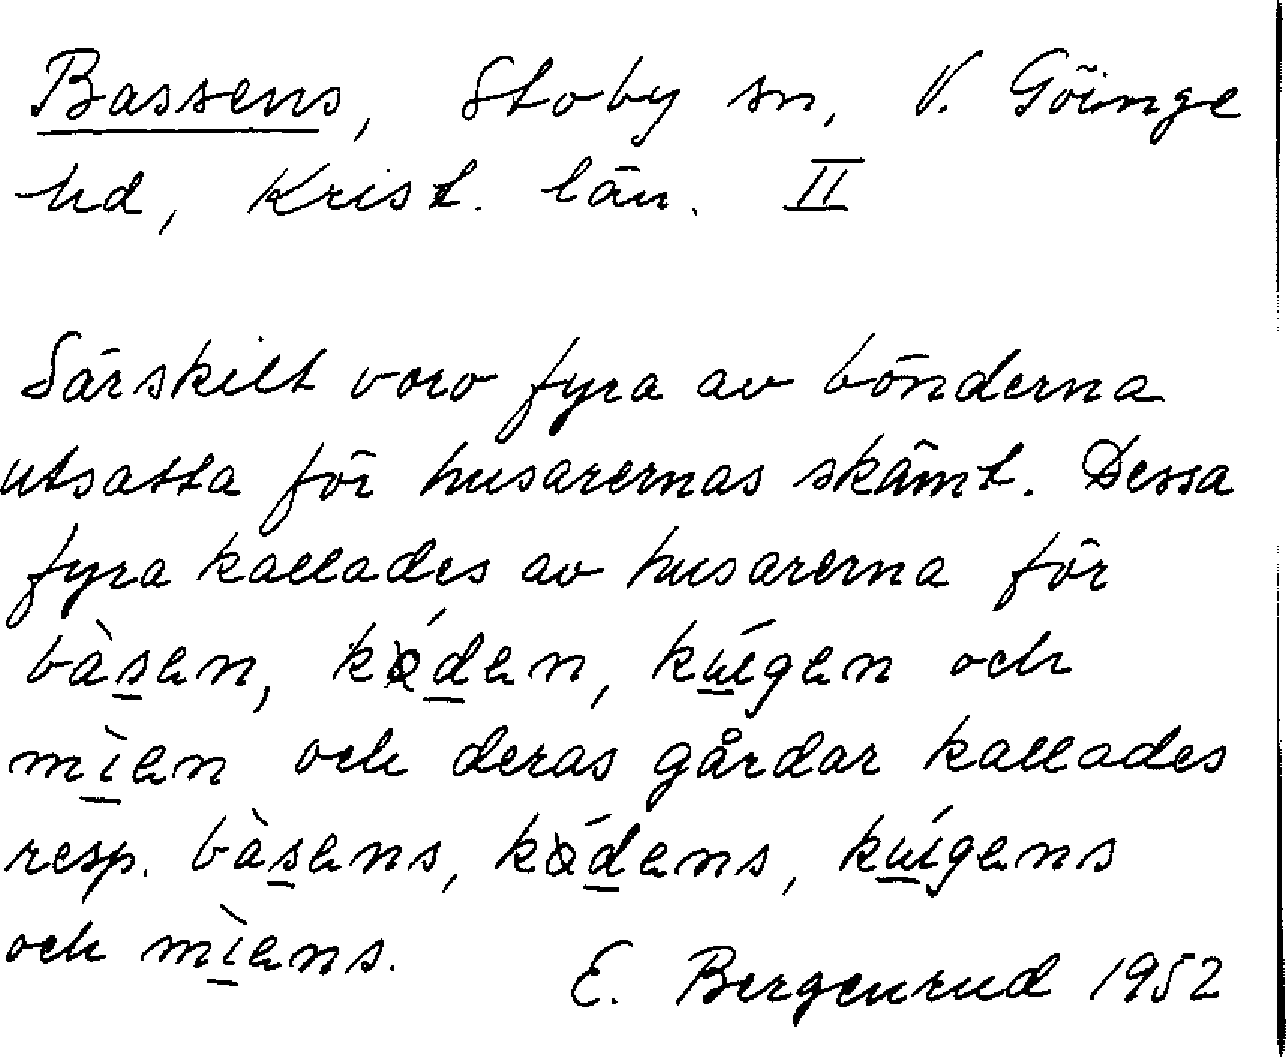 Bassens, Stoby sn, V. Göinge
hd, Krist. län. II
Särskilt voro fyra av bönderna
utsatta för husarernas skämt. Dessa
fyra kallades av husarerna för
bàs̲en, och
mì̲en och deras gårdar kallades
resp. bàs̲ens,
och mì̲ens.
E. Bergenrud 1952